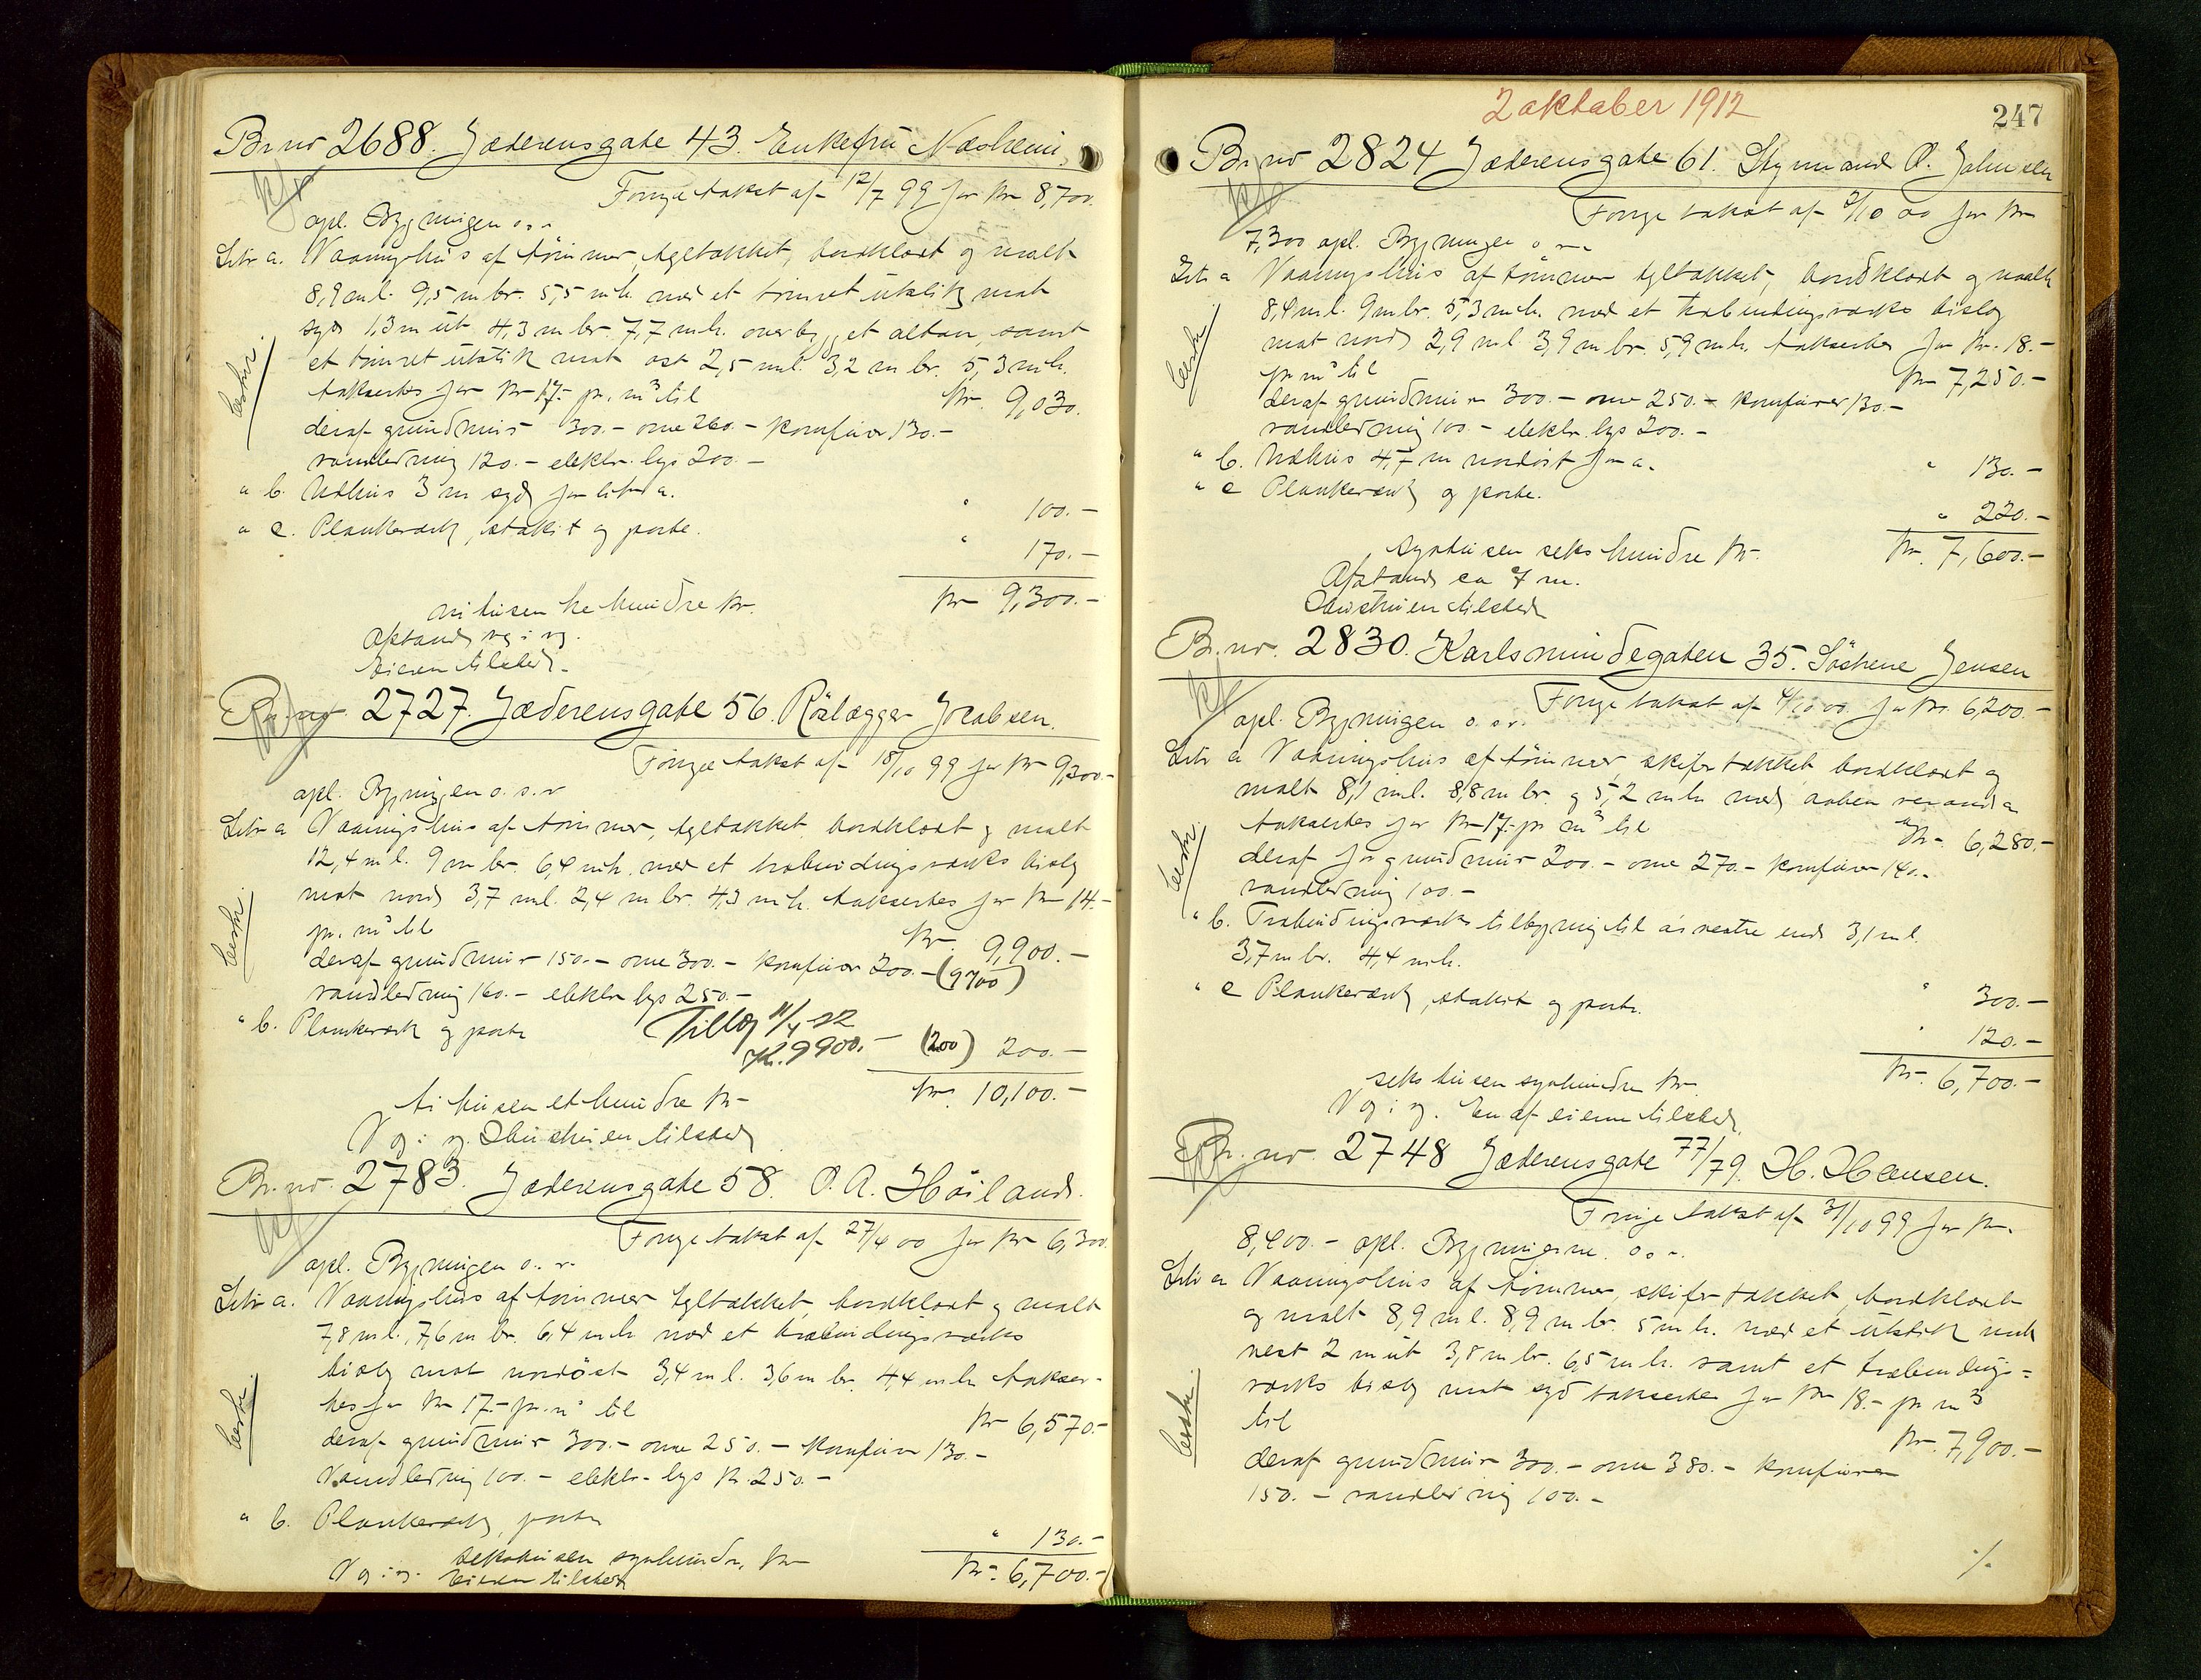 Br. nr 2688. Jæderensgate 43. Enkefru Næsheim.
Forrige takst af 12/7 99 for Kr 8,700.
opl. Bygningen o. s. v
Litr a. Vaaningshus af tømmer, tgltækket, bordklædt og malt
8,9 m l. 9,5 m br. 5,5 m h. med et tømret utstik mot
syd 1,3 m ut 4,3 m br 7,7 m h. overbygget altan, samt
et tømret utstik mot øst 2,5 m l. 3,2 m br. 5,3 m h.
takseres for Kr 17.- pr. m³ til Kr. 9,030.
deraf grundmur 300.- ovne 260.- komfurer 130.-
vandledning 120.- elektr. lys 200.-
" b. Uthus 3 m syd for litr a. " 100.-
" c. Plankeværk, stakit og porte. " 170.-
Kr 9,300.-
ni tusen tre hundre Kr.
Afstand v g i v g.
Eieren tilsted.
Br. nr. 2727. Jæderensgate 56. Rørlægger Jacobsen.
Forrige takst af 18/10 99 for Kr 9,300.-
opl. Bygningen o. s. v
Litr a Vaaningshus af tømmer, tgltækket, bordklædt og malt
12,4 m l. 9 m br. 6,4 m h. med et træbindingsværks bislag
mot nord 3,7 m l. 2,4 m br. 4,3 m h. takseres for Kr 14.-
pr. m³ til Kr. 9,900.-
deraf grundmur 150.- ovne 300.- komfurer 200.- (9700)
vandledning 160.- elektr lys 250.-
Tillæg 11/4 22
" b. Plankeværk og porte (200) 200.-
Kr. 9900.-
Kr. 10,100.-
ti tusen et hundre Kr-
V g i v g. Hustruen tilsted
Br. nr. 2783. Jæderensgate 58. O. A. Høiland.
Forrige takst af 27/4 00 for Kr 6,300.
opl. Bygningen o. s. v.
Litr a. Vaaningshus af tømmer tgltækket, bordklædt og malt
7,8 m l. 7,6 m br. 6,4 m h med et træbindingsværks
bislag mot nordøst 3,4 m l. 3,6 m br. 4,4 m h takser-
tes for Kr 17.- pr. m³ til Kr 6,570.-
deraf grundmur 300.- ovne 250.- komfurer 130.-
Vandledning 100.- elektr. lys K 250.-
" b. Plankeværk, porte " 130.-
sekstusen syvhundre, Kr Kr. 6,700.-
V g i v g. Eieren tilsted
2 oktober 1912
247
Br. nr 2824 Jæderensgate 61. Styrmand O. Johnsen
Forrige takst af 2/10 00 for Kr
7,300 opl. Bygningen o s v.
Litr a Vaaningshus af tømmer tgltækket, bordklædt og malt
8,4 m l. 9 m br. 5,3 m h. med et træbindingsværks bislag
mot nord 2,9 m l 3,9 m br. 5,9 m h. takseres for Kr. 18.-
pr m³ til Kr 7,250.-
deraf grundmur 300.- ovne 250.- komfurer 130.-
vandledning 100.- elektr. lys 200.-
" b. Uthus 4,7 m nordøst for a. " 130.-
" c Plankeværk og porte. " 220.-
Kr. 7,600.-
syvtusen seks hundre Kr.
Afstand ca 7 m.
Hustruen tilsted
Br. nr. 2830. Karlsmindegaten 35. Søstrene Jensen
Forrige takst af 4/10 00 for Kr. 6,200.-
opl. Bygningen o. s. v.
Litr a Vaaningshus af tømmer, skifertækket bordklædt og
malt 8,1 m l. 8,8 m br. og 5,2 m h med aaben veranda
takseres for Kr 17.- pr m³ til Kr. 6,280.-
deraf for grundmur 200.- ovne 270.- komfurer 140.-
vandledning 100.-
" b. Træbindingsværks tilbygning til a's vestre ende 3,1 m l.
3,7 m br. 4,4 m h. " 300.-
" c Plankeværk, stakit og porte. " 120.-
Kr. 6,700.-
seks tusen syvhundre Kr.
V g i v g. En af eierne tilsted.
Br. nr. 2748 Jæderensgate 77/79. H. Hansen.
Forrige takst af 31/10 99 for Kr.
8,400.- opl. Bygningerne. o s v.
Litr a Vaaningshus af tømmer, skifertækket, bordklædt
og malt 8,9 m l. 8,9 m br. 5 m h. med et utstik mot
vest 2 m ut 3,8 m br. 6,5 m h. samt et træbindings=
værks bislag mot syd takseres for Kr 18.- pr m³
til Kr. 7,900.-
deraf grundmur 300.- ovne 380.- komfurer
150.- vandledning 100.-
./.